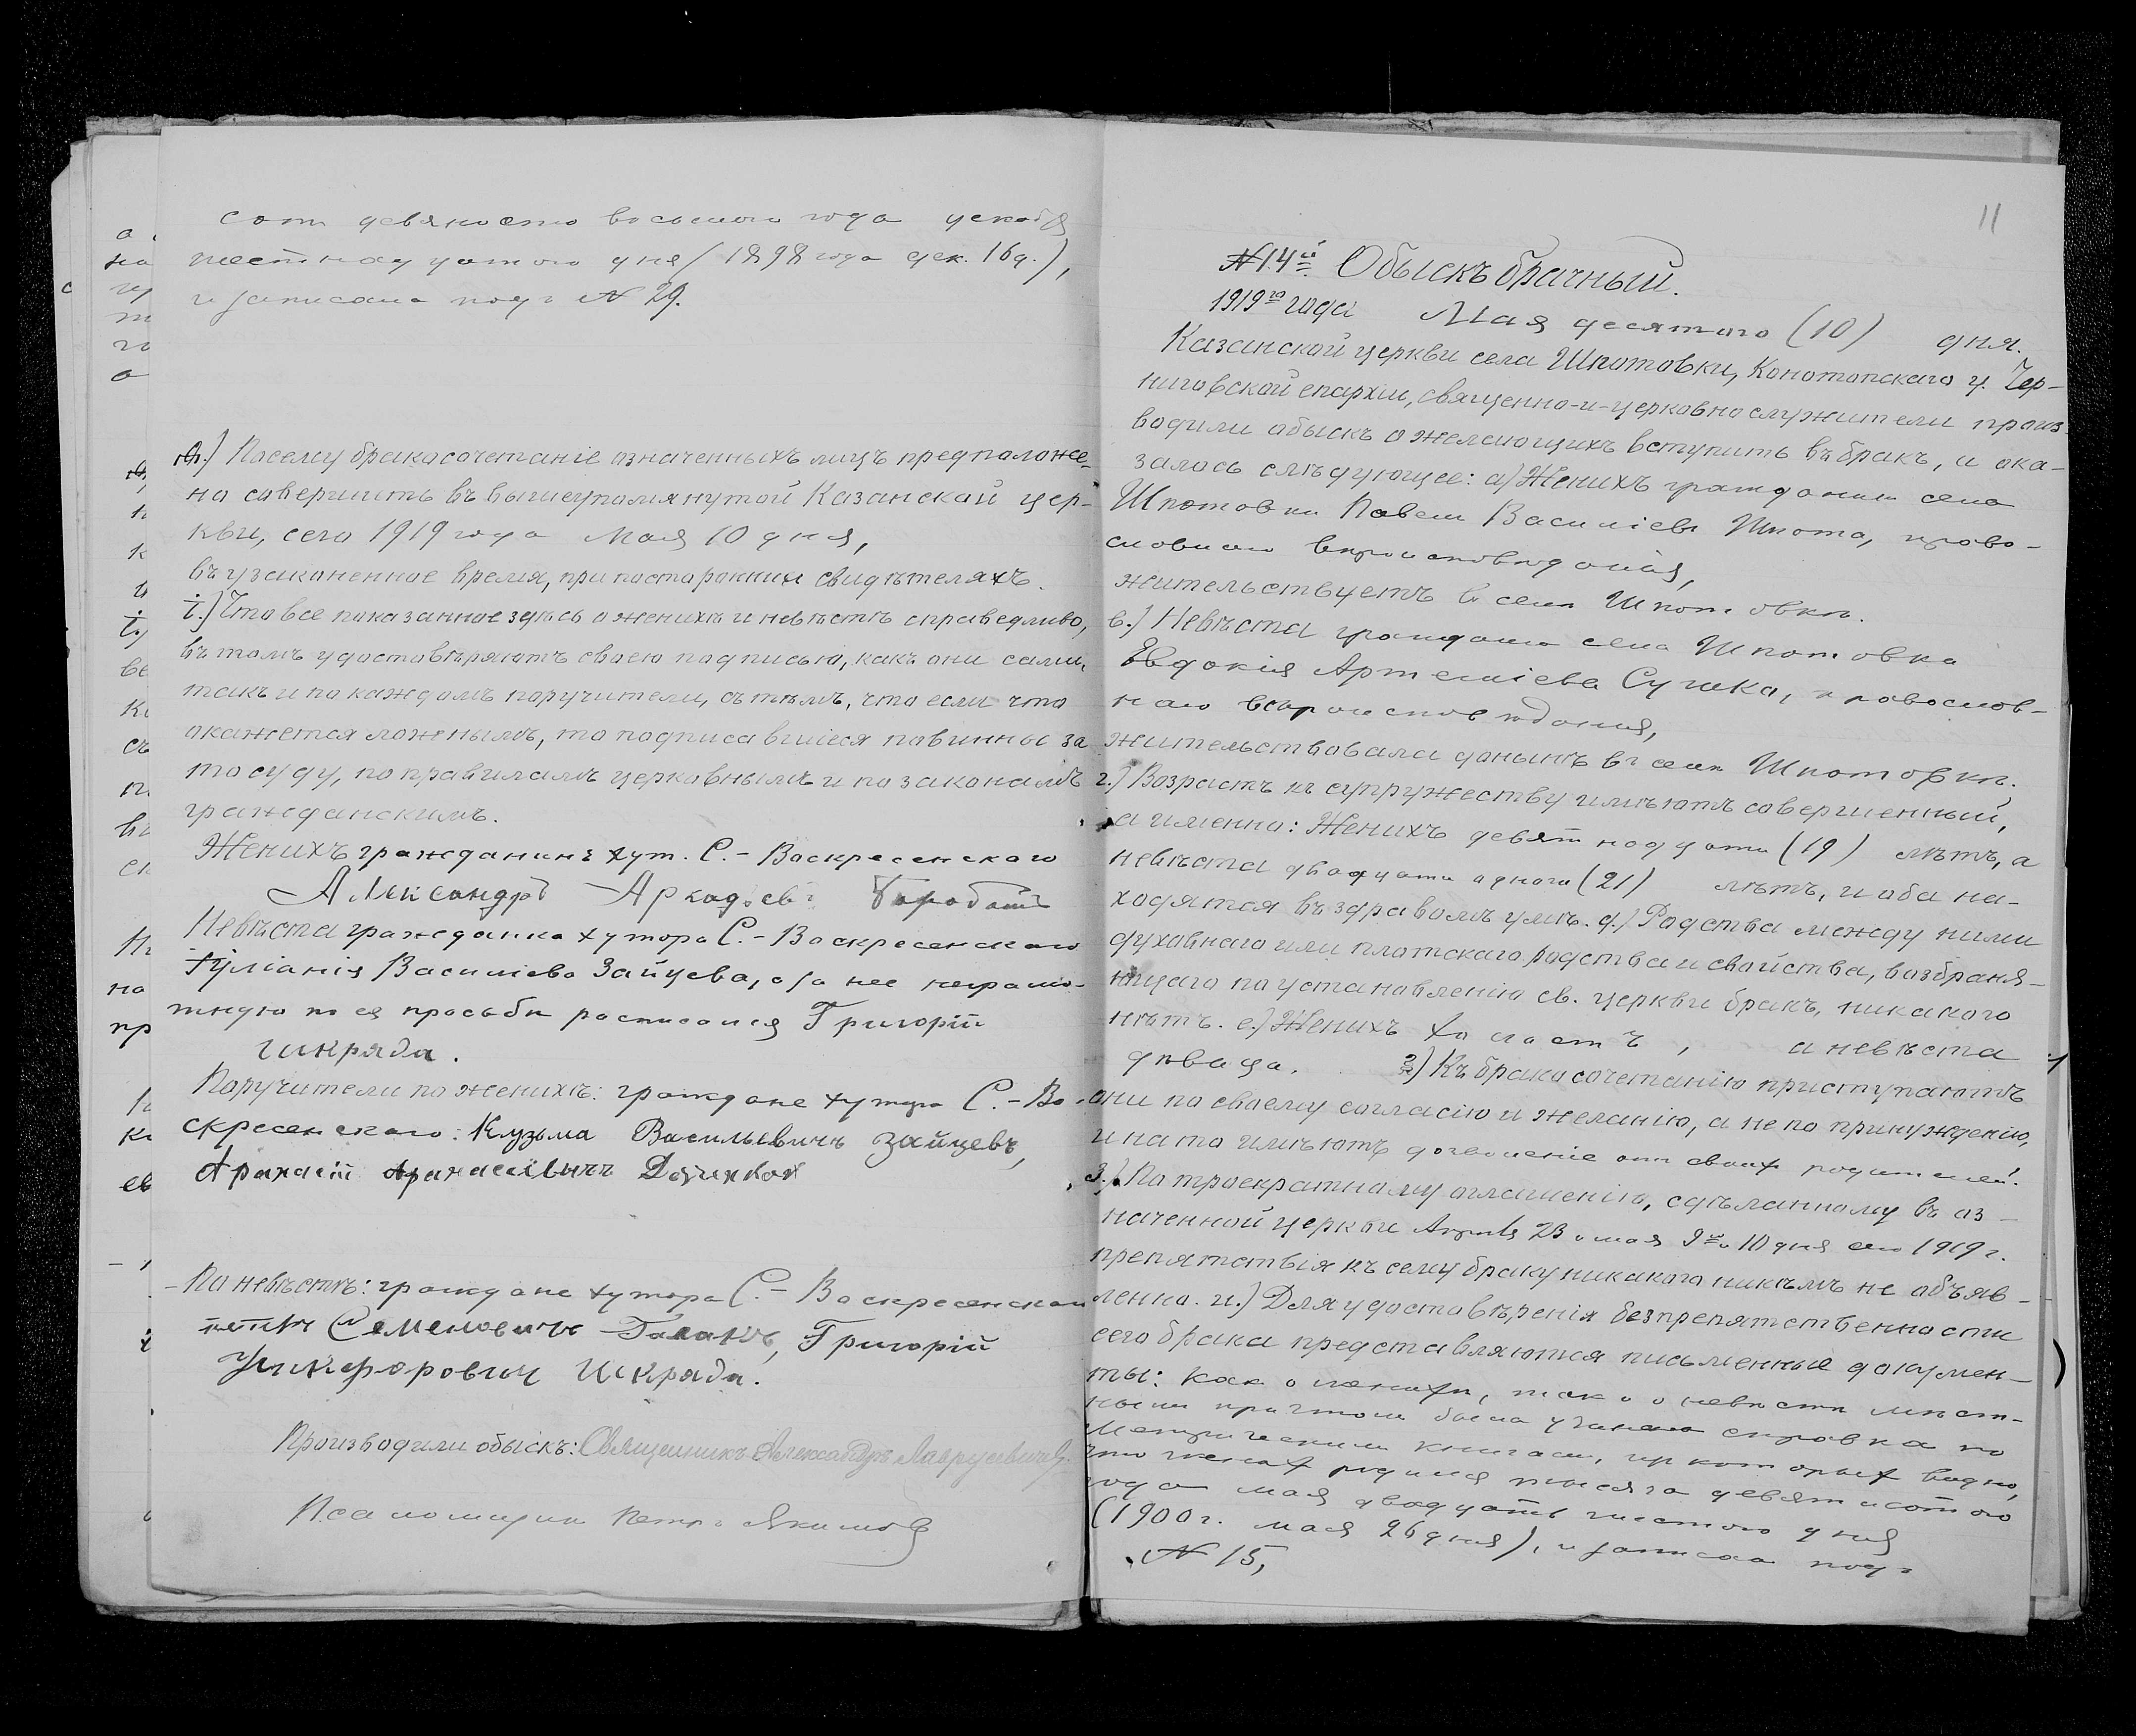 сотъ девяносто восьмого года декабря
шестнадцатаго дня (1898 года дек. 16 д.),
и записана подъ № 29.
ѳ.) Посему бракосочетаніе означенныхъ лицъ предположе-
но совершить въ вышеупомянутой Казанской цер-
кви, сего 1919 года Мая 10 дня,
въ узаконенное время, при постороннихъ свидѣтеляхъ.
і.) Что все показанное здѣсь о женихѣ и невѣстѣ справедливо,
въ томъ удостовѣряютъ своею подписью, какъ они сами,
такъ и по каждомъ поручители, съ тѣмъ, что если что
окажется ложнымъ, то подписавшіеся повинны за
то суду, по правиламъ церковнымъ и по законамъ
гражданскимъ.
Женихъ гражданинъ хут. С.-Воскресенскаго
Александръ Аркадьевъ
Невѣста гражданка хутора С.-Воскресенскаго
Іуліанія Василіева Зайцева, а за нее неграмо-
тную по ея просьбѣ росписался Григорій
Шкряда.
Поручители по женихѣ: граждане хутора С.-Во-
скресенскаго: Кузьма Васильевичъ Зайцевъ,
Афанасій Афанасіевичъ
По невѣстѣ: граждане хутора С.-Воскресенскаго
Петръ Семеновичъ Григорій
Никифоровичъ Шкряда.
Производили обыскъ: Священникъ Александръ
Псаломщикъ Петръ Якимовъ
11
№ 14й Обыскъ брачный.
1919го года Мая десятаго (10) дня.
Казанской церкви села Шпотовки, Конотопскаго у. Чер-
ниговской епархіи, священно-и-церковнослужители произ-
водили обыскъ о желающихъ вступить въ бракъ, и ока-
залось слѣдующее: а) Женихъ гражданинъ села
Шпотовки Павелъ Василіевъ Шпота, право-
славнаго вѣроисповѣданія,
жительствуетъ въ селѣ Шпотовкѣ.
в.) Невѣста гражданка села Шпотовка
Евдокія Артеміева Сушка, православ-
наго вѣроисповѣданія,
жительствовала донынѣ въ селѣ Шпотовкѣ.
г.) Возрастъ къ супружеству имѣютъ совершенный,
а именно: Женихъ девятнадцати (19) лѣтъ, а
невѣста двадцати одного (21) лѣтъ, и оба на-
ходятся въ здравомъ умѣ. д.) Родства между ними
духовнаго или плотскаго родства и свойства, возбраня-
ющаго по установленію св. церкви бракъ, никакого
нѣтъ. е.) Женихъ холостъ, а невѣста
дѣвица. з) Къ бракосочетанію приступаютъ
они по своему согласію и желанію, а не по принужденію,
и на то имѣютъ дозволеніе отъ своихъ родителей.
з.) По троекратному оглашенію, сдѣланному въ оз-
наченной церкви Апрѣля 23 и мая 9го и 10 дня сего 1919 г.
препятствія къ сему браку никакого никѣмъ не объяв-
лено. и.) Для удостовѣренія безпрепятственности
сего брака представляются письменные докумен-
ты: как о женихѣ, так и о невѣстѣ мѣст-
нымъ причтомъ была учинена справка по
Метрическимъ книгамъ, изъ которыхъ видно,
что женихъ родился тысяча девятисотаго
года мая двадцать шестого дня
(1900 г. мая 26 дня), и записанъ подъ
№ 15,